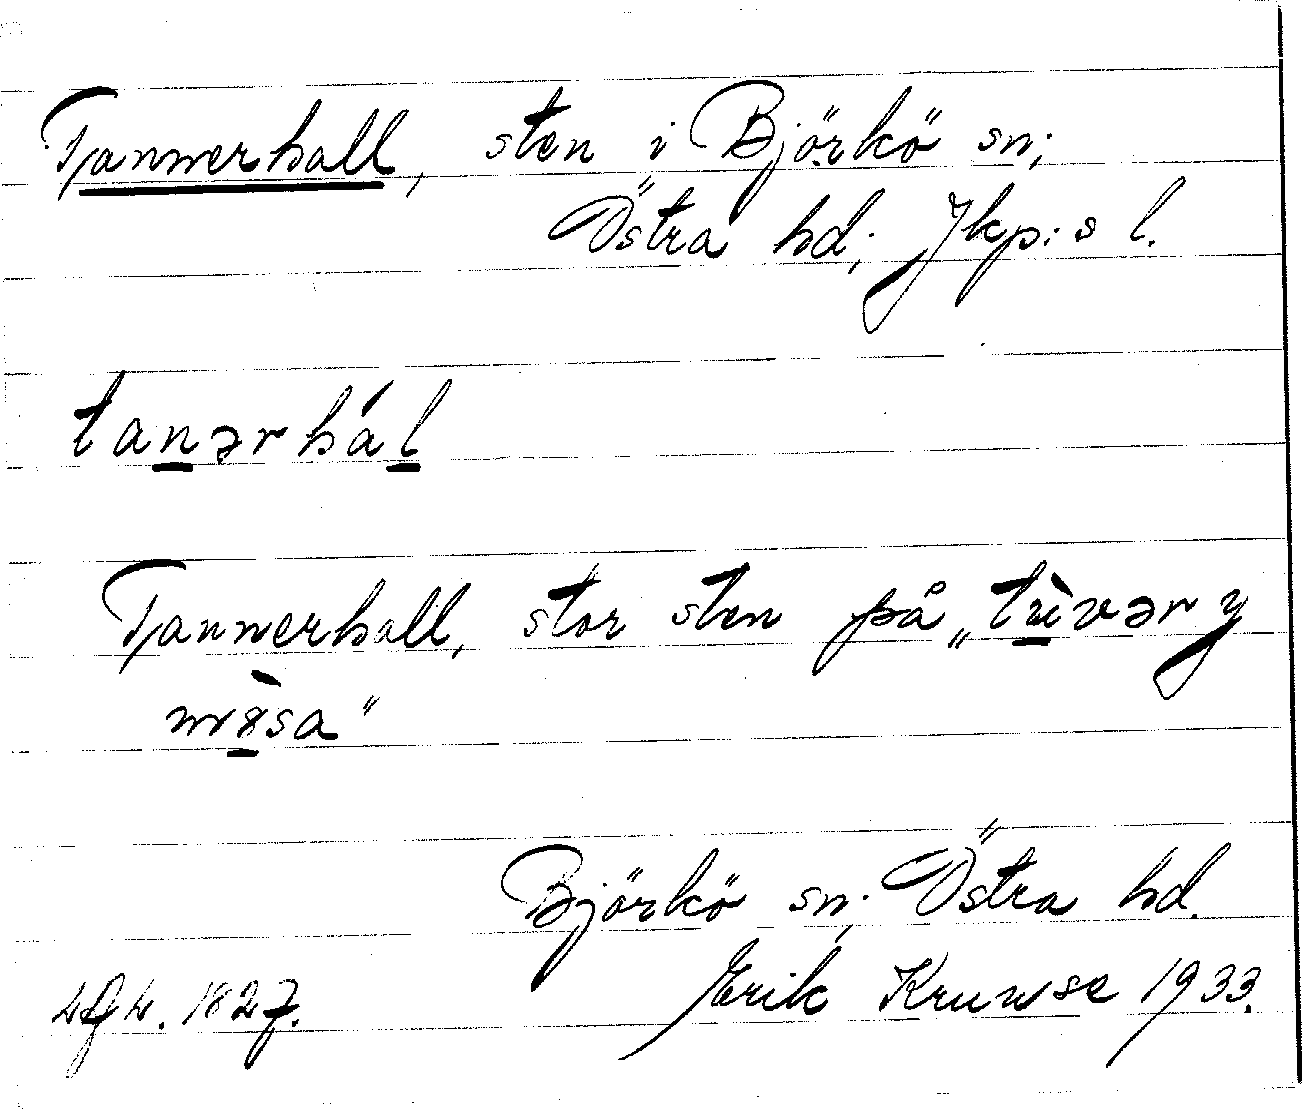 Tannerhall, sten i Björkö sn;
Östra hd; Jkp:s l.
tanərhál
Tannerhall, stor sten på „tùvəry
mɤ̀sa"
Björkö sn; Östra hd.
Erik Kruuse 1933.
1827.